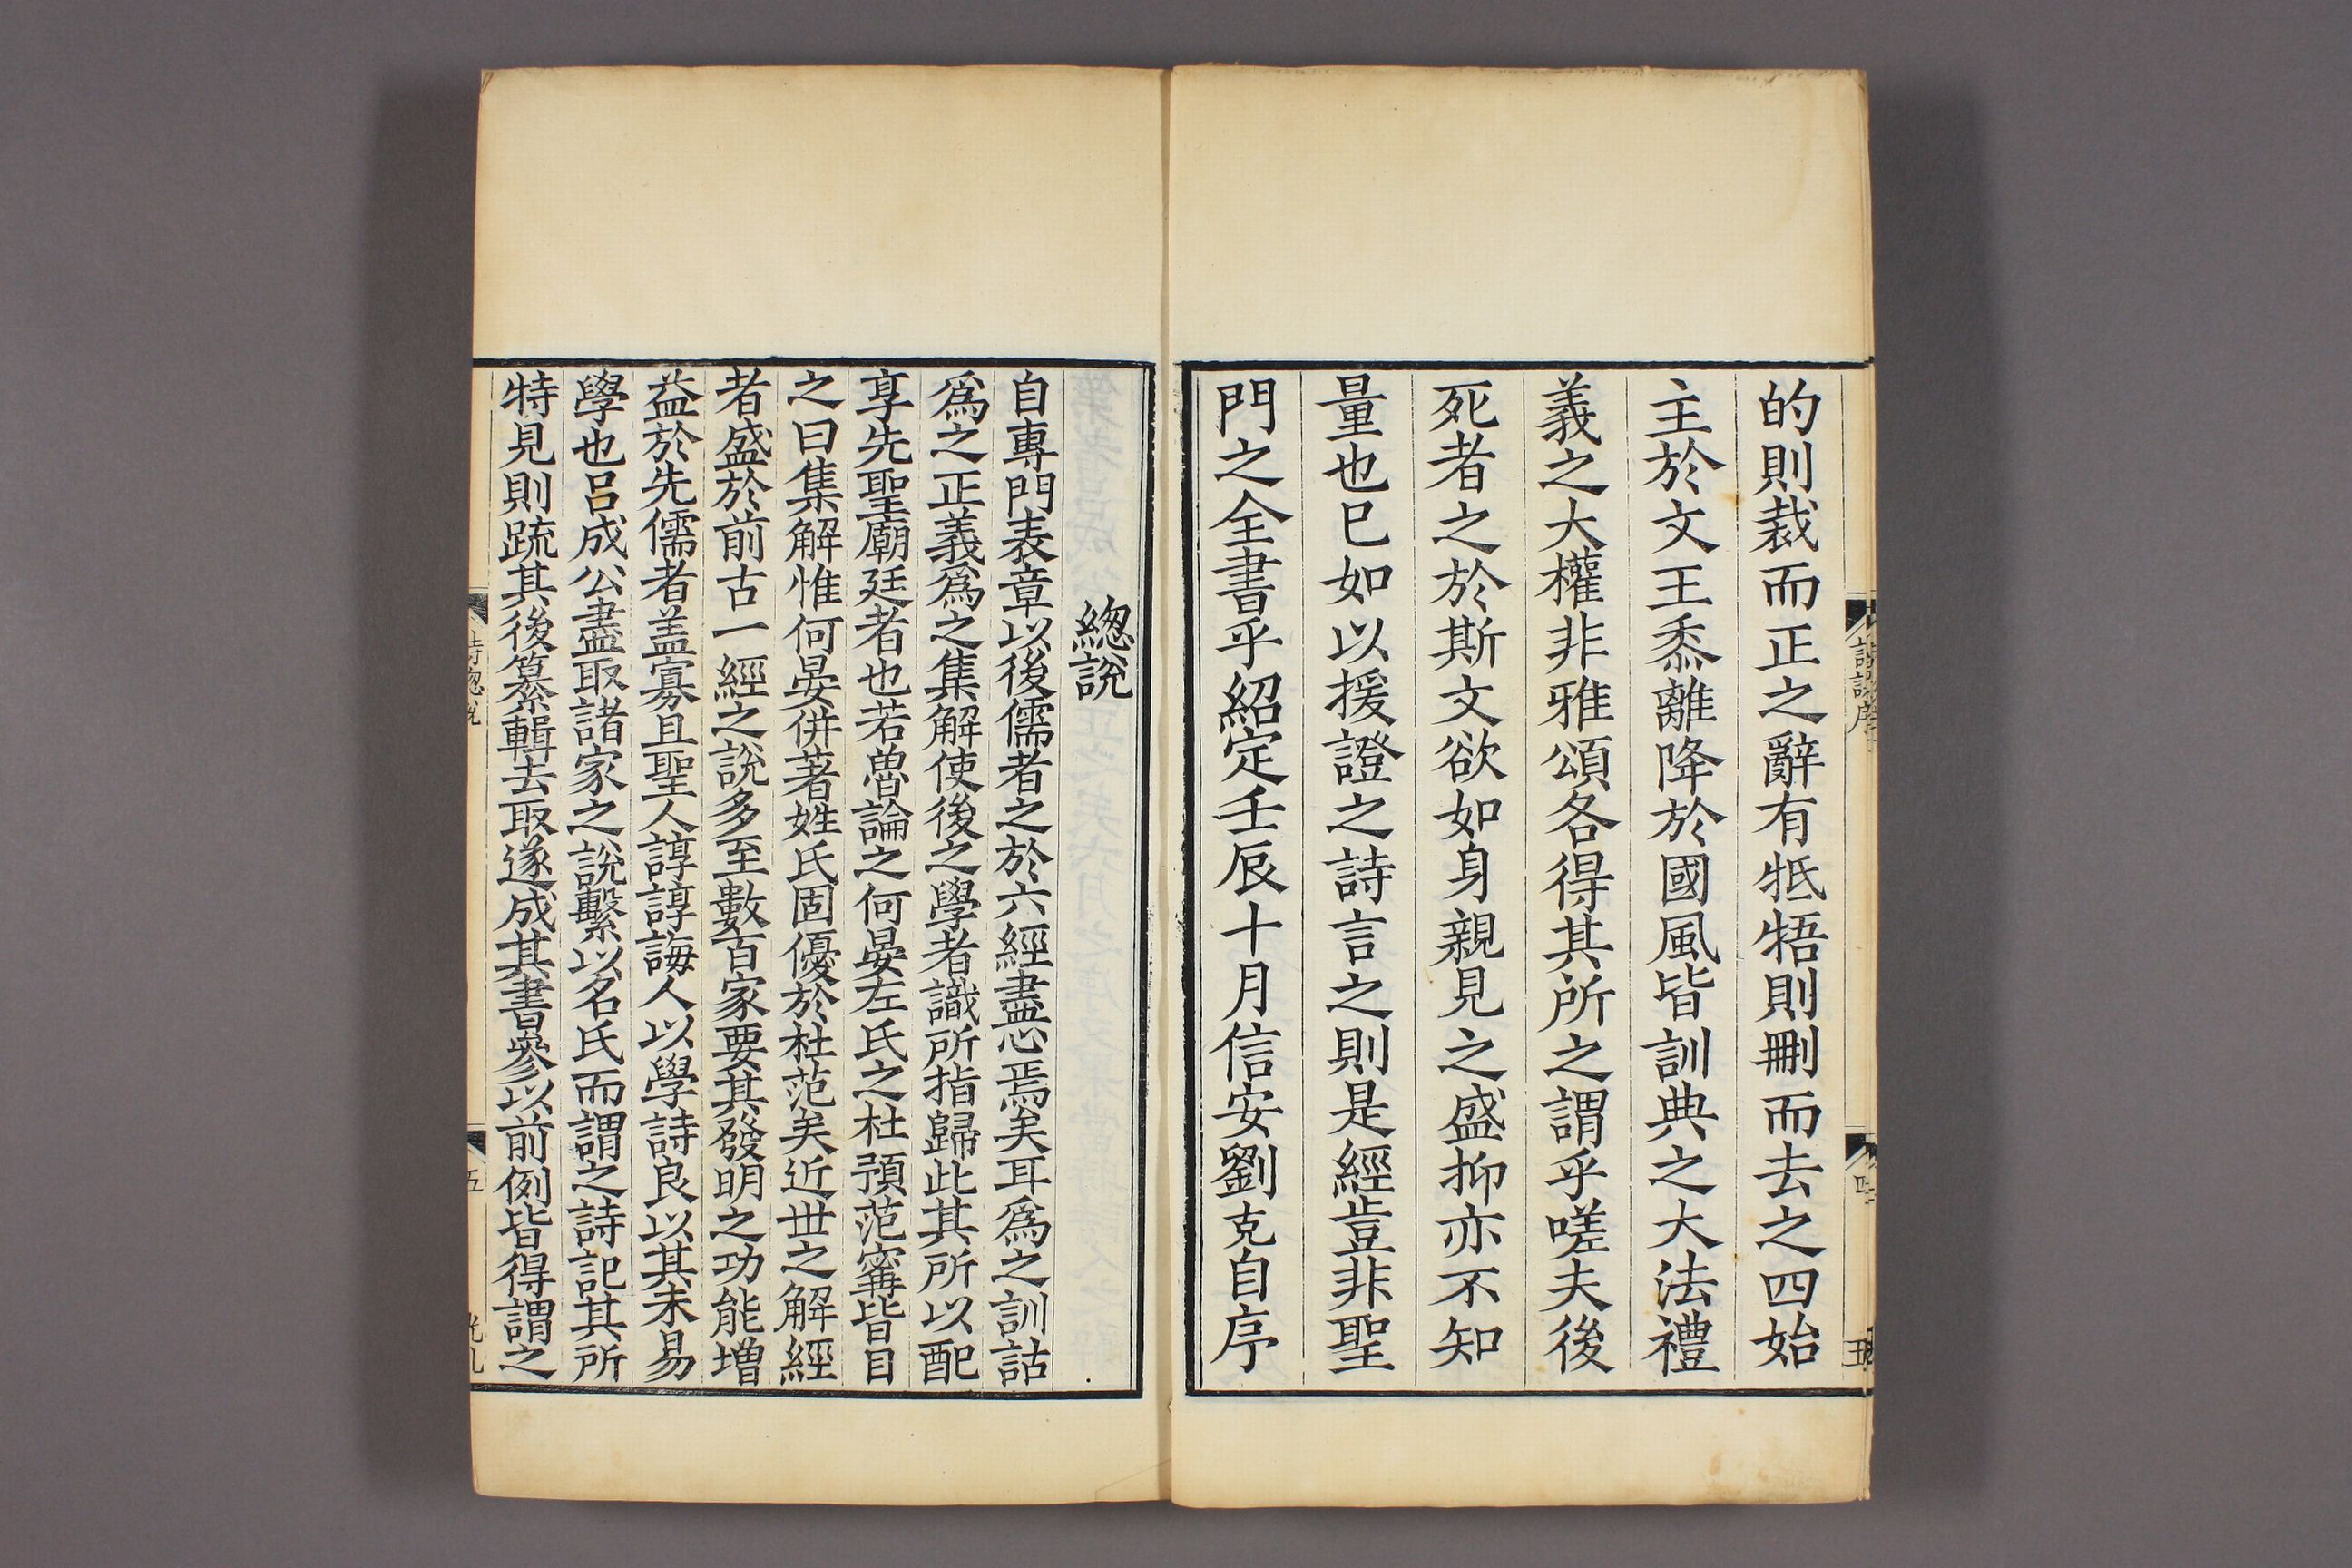 的則裁而正之辭有牴牾則刪而去之四始
主於文王黍離降於國風皆訓典之大法禮
義之大權非雅頌各得其所之謂乎嗟夫後
死者之於斯文欲如身親見之盛抑亦不知
量也已如以援證之詩言之則是經豈非聖
門之全書乎紹定壬辰十月信安劉克自序
緫說
自專門表章以後儒者之於六經盡心焉矣耳爲之訓詁
爲之正義爲之集解使後之學者識所指歸此其所以配
享先聖廟廷者也若魯論之何晏左氏之杜預范甯皆目
之曰集解惟何晏併著姓氏固優於杜范矣近世之解經
者盛於前古一經之說多至數百家要其發明之功能増
益於先儒者盖寡且聖人諄諄誨人以學詩良以其未易
學也呂成公盡取諸家之說繫以名氏而謂之詩記其所
特見則䟽其後纂輯去取遂成其書參以前例皆得謂之
詩緫說
五